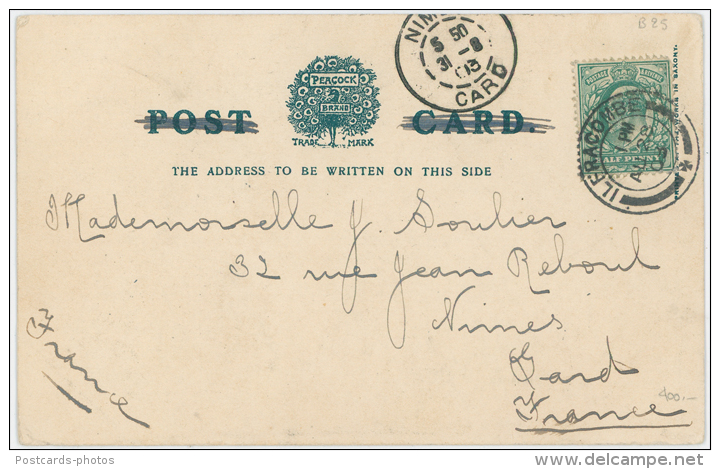 B25
NIMES
5 50
31 -8
03
GARD
PEACOCK
BRAND
TRADE MARK
POST CARD.
POSTAGE
ILFRACOMBE
HALF PENNY
IN SAXONY.
THE ADDRESS TO BE WRITTEN ON THIS SIDE
Mademoiselle J. Soulier
32 rue Jean Reboul
Nimes
Gard
France
France
400,-
Postcards-photos
www.delcampe.net